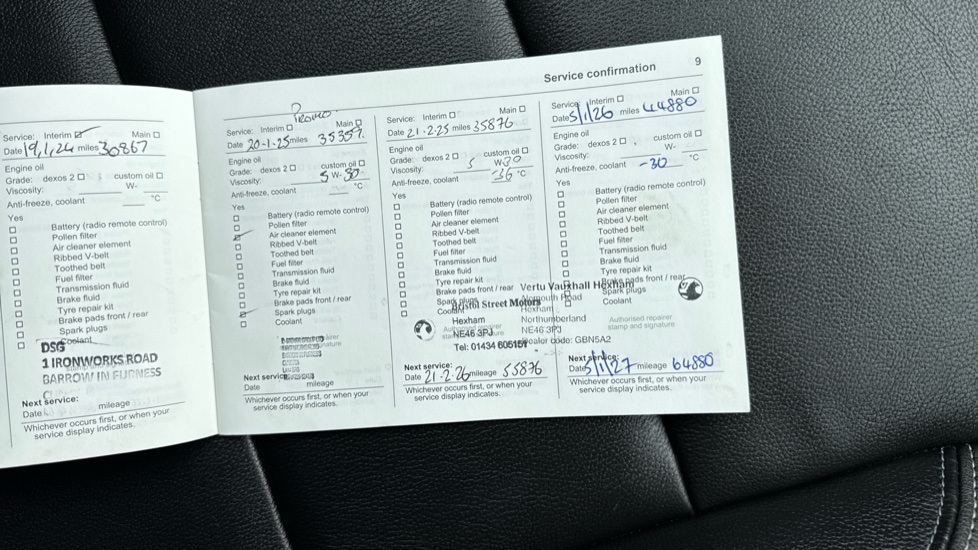 Service confirmation
9
Service: Interim Main
Date 19,1,24 miles 30867
Engine oil
Grade: dexos 2 custom oil
Viscosity: W-
Anti-freeze, coolant °C
Yes
Battery (radio remote control)
Pollen filter
Air cleaner element
Ribbed V-belt
Toothed belt
Fuel filter
Transmission fluid
Brake fluid
Tyre repair kit
Brake pads front / rear
Spark plugs
Coolant
DSG
1 IRONWORKS ROAD
BARROW IN FURNESS
Next service:
Date mileage
Whichever occurs first, or when your
service display indicates.
Promo
Service: Interim Main
Date 20-1-25 miles
Engine oil
Grade: dexos 2 custom oil
Viscosity: 5 W- 30
Anti-freeze, coolant °C
Yes
Battery (radio remote control)
Pollen filter
Air cleaner element
Ribbed V-belt
Toothed belt
Fuel filter
Transmission fluid
Brake fluid
Tyre repair kit
Brake pads front / rear
Spark plugs
Coolant
Next service:
Date mileage
Whichever occurs first, or when your
service display indicates.
Service: Interim Main
Date 21-2-25 miles 35876
Engine oil
Grade: dexos 2 custom oil
Viscosity: 5 W- 30
Anti-freeze, coolant -36 °C
Yes
Battery (radio remote control)
Pollen filter
Air cleaner element
Ribbed V-belt
Toothed belt
Fuel filter
Transmission fluid
Brake fluid
Tyre repair kit
Brake pads front / rear
Spark plugs
Coolant
Bristol Street Motors
Hexham
NE46 3PJ
Tel: 01434 605151
Next service:
Date 21-2-26 mileage 55876
Whichever occurs first, or when your
service display indicates.
Service: Interim Main
Date 5/1/26 miles 44880
Engine oil
Grade: dexos 2 custom oil
Viscosity: W-
Anti-freeze, coolant -30 °C
Yes
Battery (radio remote control)
Pollen filter
Air cleaner element
Ribbed V-belt
Toothed belt
Fuel filter
Transmission fluid
Brake fluid
Tyre repair kit
Brake pads front / rear
Spark plugs
Coolant
Vertu Vauxhall Hexham
Alemouth Road
Hexham
Northumberland
NE46 3PJ
Dealer code: GBN5A2
Authorised repairer
stamp and signature
Next service:
Date 5/1/27 mileage 64880
Whichever occurs first, or when your
service display indicates.